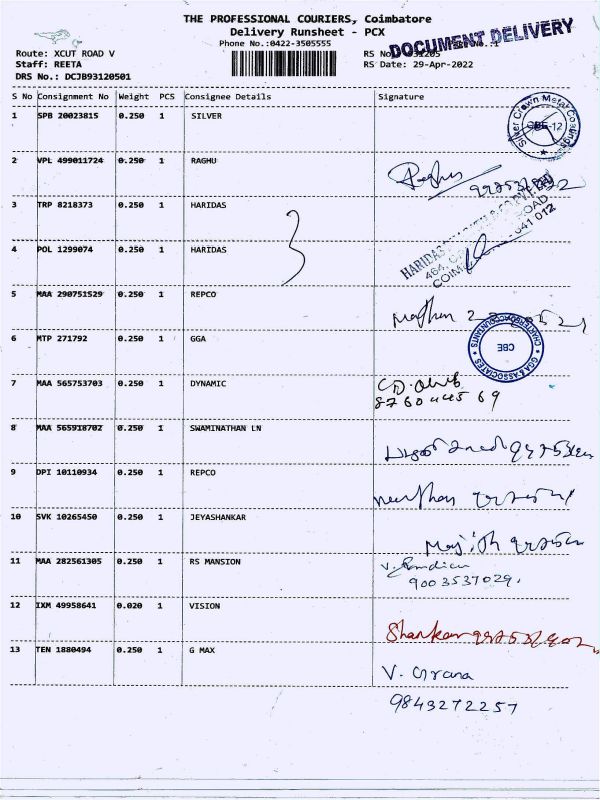 THE PROFESSIONAL COURIERS, Coimbatore
Delivery Runsheet - PCX
Phone No.:0422-3505555
DOCUMENT DELIVERY
Route: XCUT ROAD V
Staff: REETA
RS Date: 29-Apr-2022
DRS No.: DCJB93120501
S No Consignment No Weight PCS Consignee Details Signature
1 SPB 20023815 0.250 1 SILVER
Silver Crown Metal Coatings
CBE-12
2 VPL 499011724 0.250 1 RAGHU
Raghu
3 TRP 8218373 0.250 1 HARIDAS
4 POL 1299074 0.250 1 HARIDAS
3
HARIDAS
ROAD
641 012
5 MAA 290751529 0.250 1 REPCO
6 MTP 271792 0.250 1 GGA
GGA & ASSOCIATES
CHARTERED ACCOUNTANTS
CBE
7 MAA 565753703 0.250 1 DYNAMIC
8 MAA 565918702 0.250 1 SWAMINATHAN LN
9 DPI 10110934 0.250 1 REPCO
10 SVK 10265450 0.250 1 JEYASHANKAR
11 MAA 282561305 0.250 1 RS MANSION
9003537029.
12 IXM 49958641 0.020 1 VISION
Shankar
13 TEN 1880494 0.250 1 G MAX
9843272257